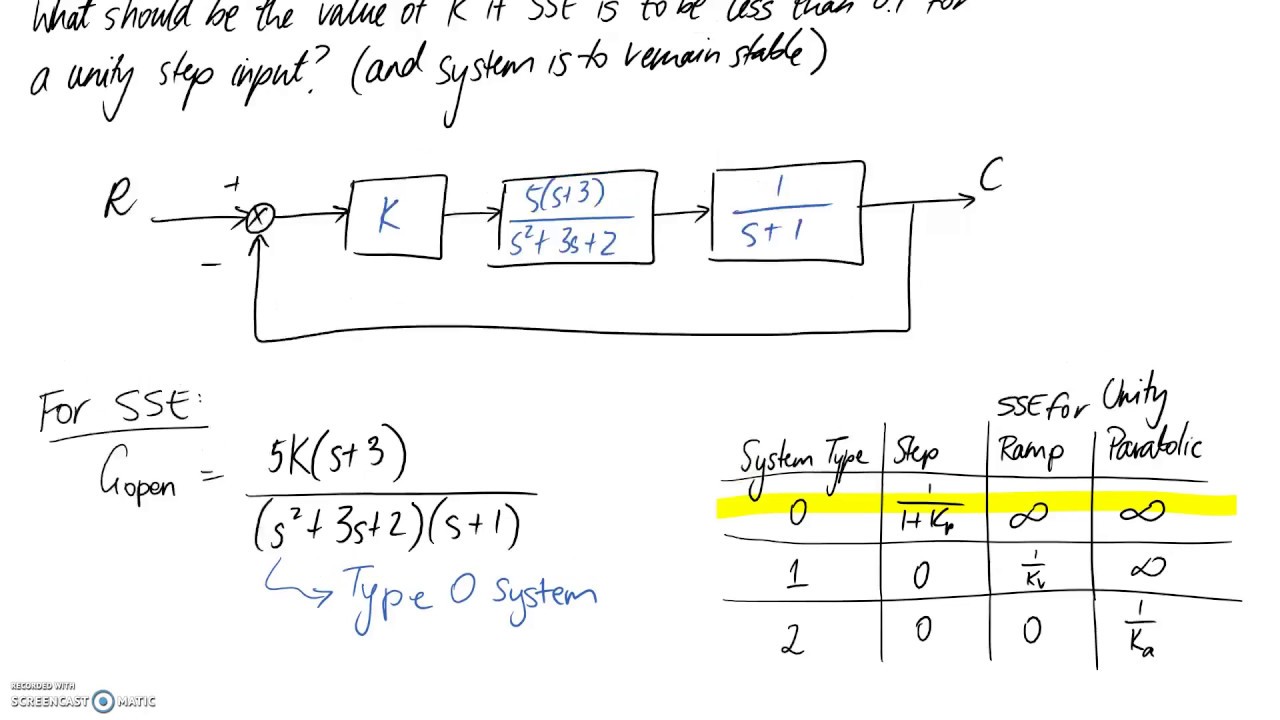 What should be the value of K if SSE is to be less than 0.1 for
a unity step input? (and system is to remain stable)
R
+
−
K
5(s+3)
s²+3s+2
1
s+1
C
For SSE:
Gopen = 5K(s+3)
(s²+3s+2)(s+1)
Type 0 system
SSE for Unity
System Type Step Ramp Parabolic
0 1/1+Kp ∞ ∞
1 0 1/Kv ∞
2 0 0 1/Ka
RECORDED WITH
SCREENCAST MATIC